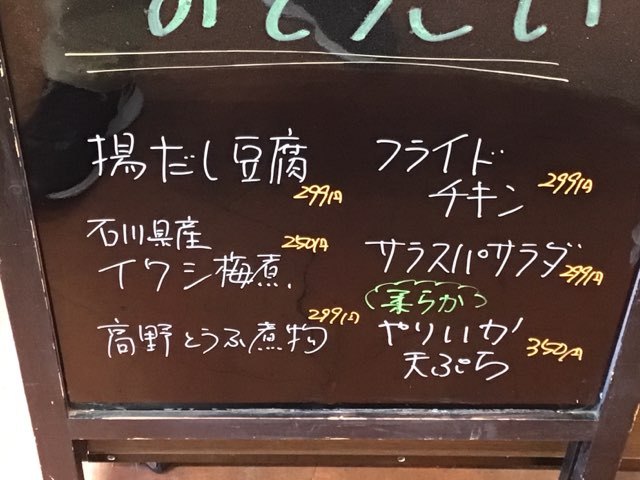 揚だし豆腐
299円
石川県産
250円
イワシ梅煮
高野とうふ煮物
299円
フライド
チキン
299円
サラスパサラダ
299円
柔らか
やりいか
天ぷら
350円